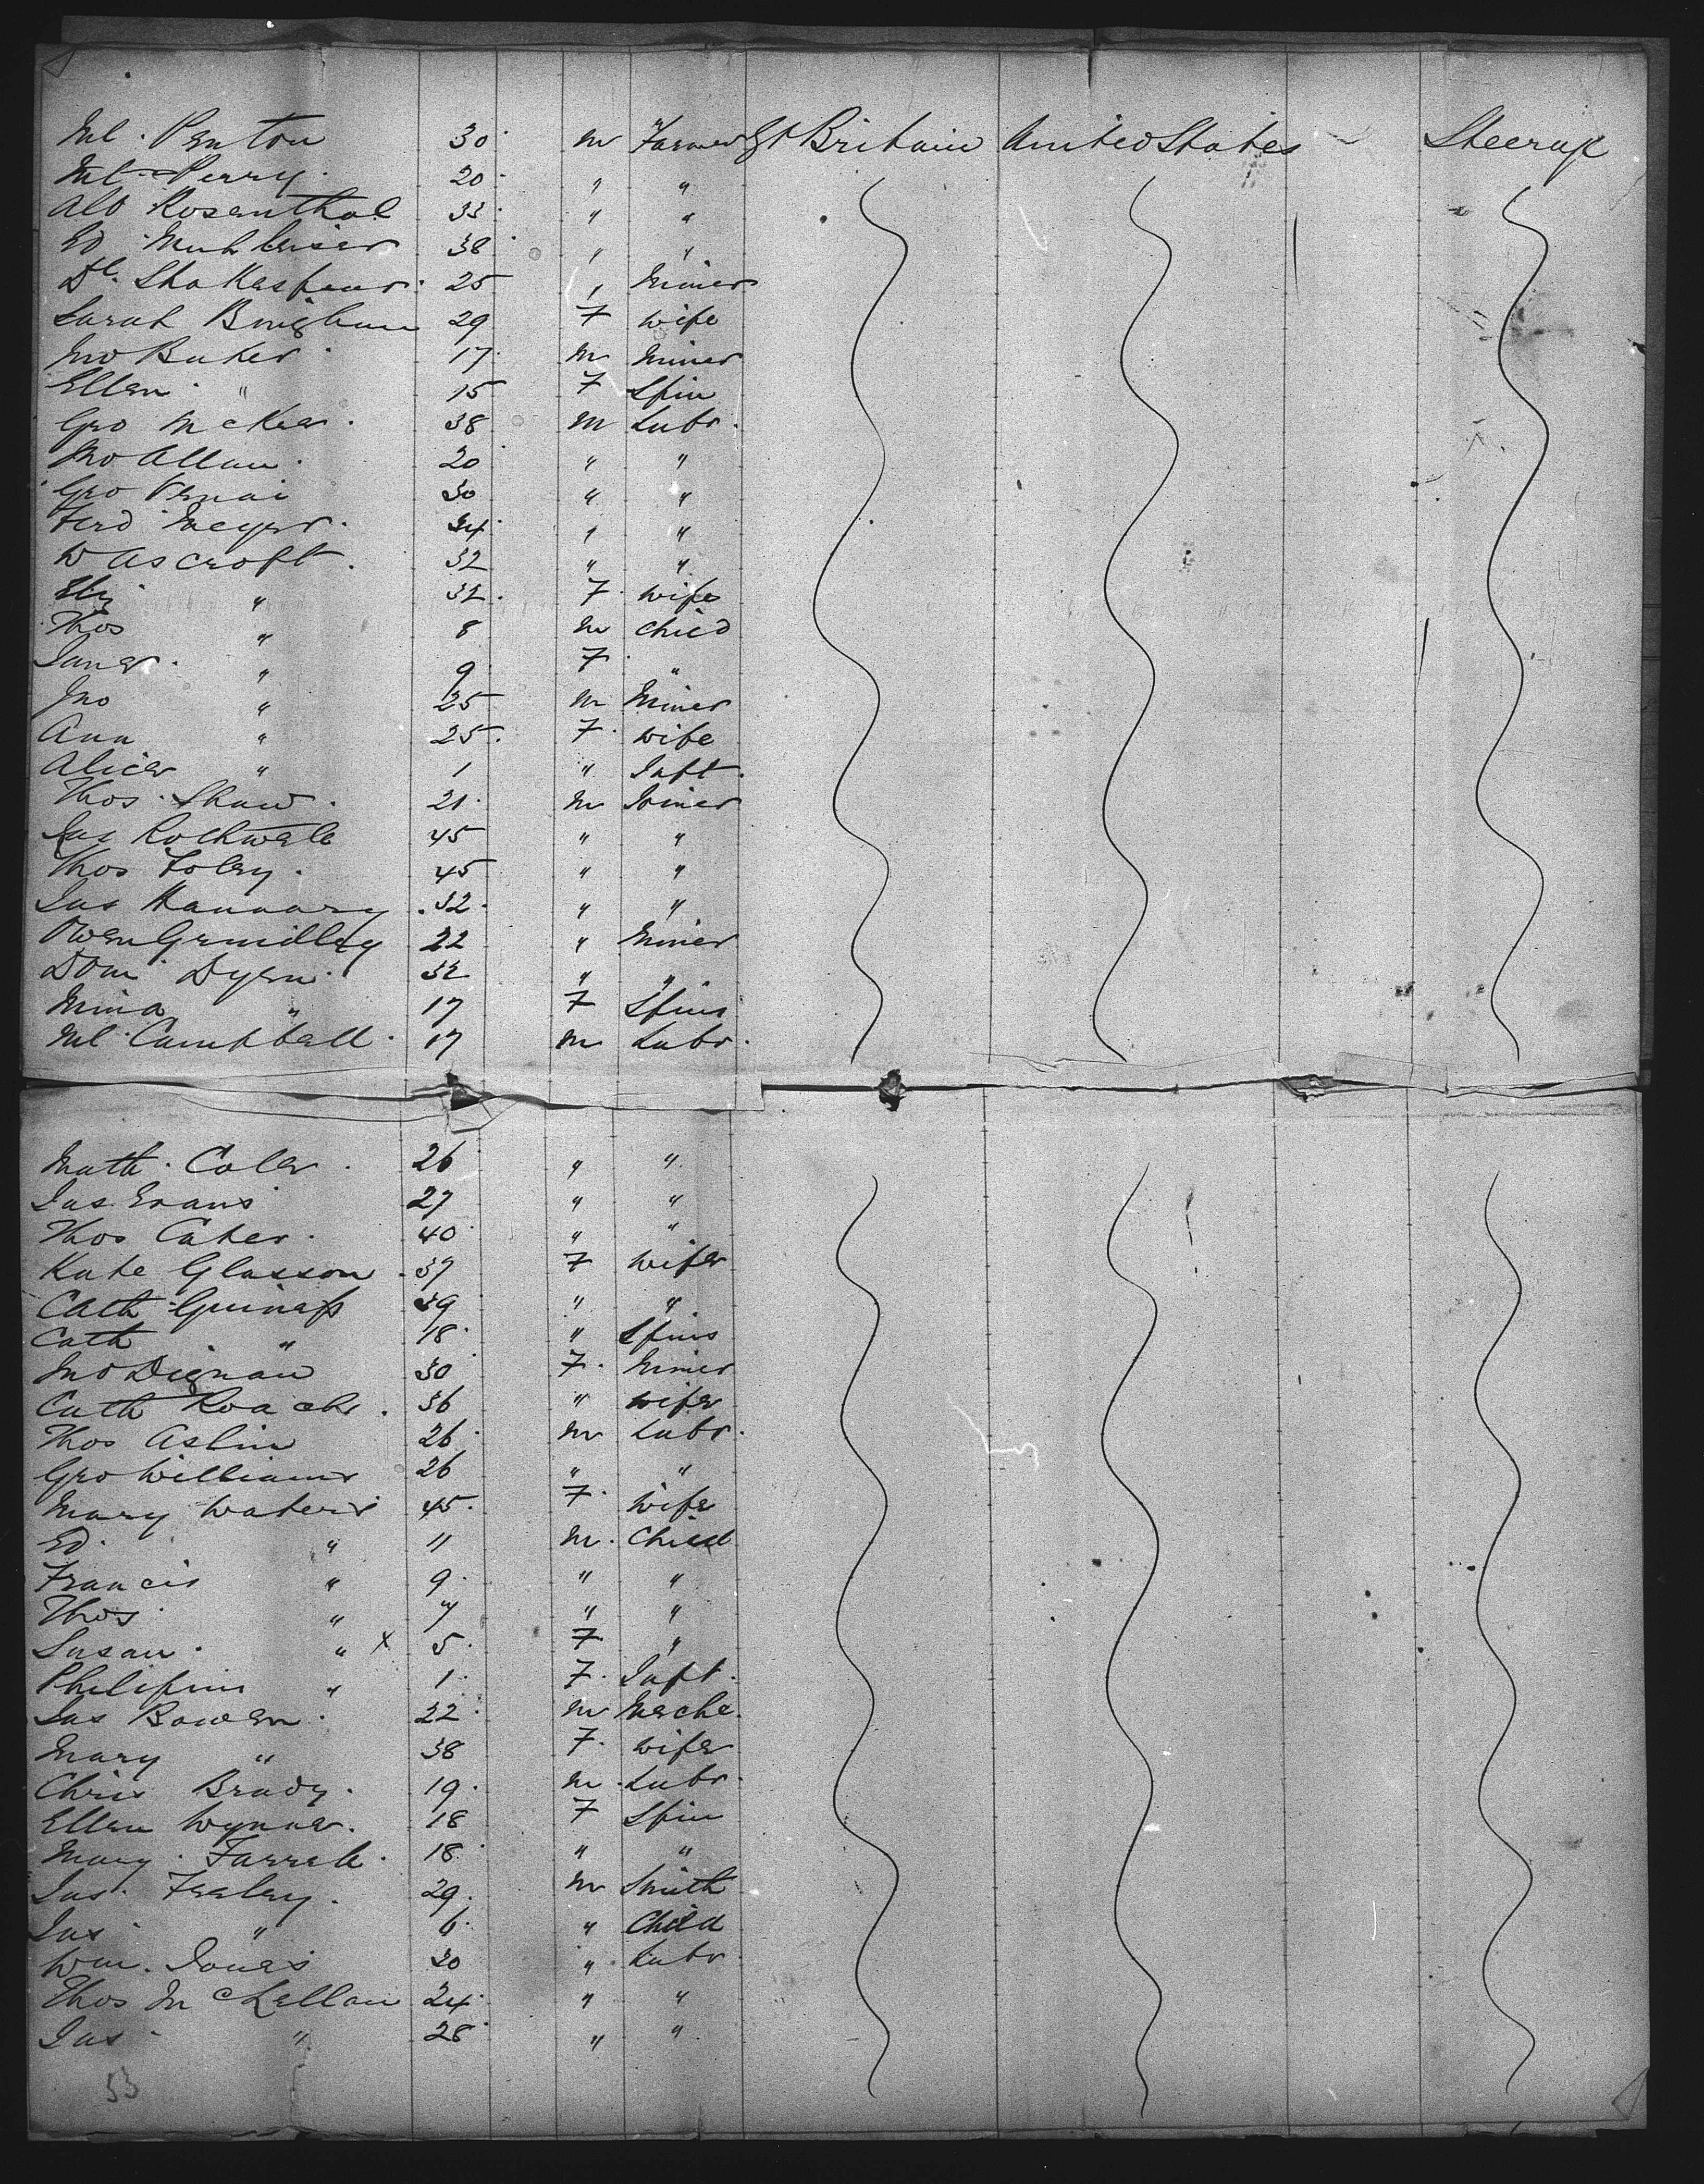 Ml Penton 30 m Farmer Gt Britain United States Steerage
Ml Perry 20 " "
Alb Rosenthal 33 " "
Ed 38 " "
Dl Shakespear 25 " Miner
Sarah Bingham 29 F wife
Jno Baker 17 m Miner
Ellen " 15 F Spin
Geo McKee 38 m Labr
Jno Allan 20 " "
Geo 30 " "
Ferd Meyer 34 " "
W Ascroft 32 " "
Eliz " 32 F wife
Thos " 8 m child
Jane " 9 F "
Jno " 25 m Miner
Ann " 25 F wife
Alice " 1 " Inft
Thos Shaw 21 m Joiner
Jas Rothwell 45 " "
Thos Foley 45 " "
Jas Hannary 32 " "
Owen Grindley 22 " Miner
Dom Dyen 32 " "
Mina " 17 F Spins
Ml Campbell 17 m Labr
Math Cole 26 " "
Jas Evans 27 " "
Thos Cater 40 " "
Kate Glasson 37 F wife
Cath Guiness 39 " "
Cath " 18 " Spins
Jno Dignan 30 F Miner
Cath Roache 36 " wife
Thos Aslin 26 m Labr
Geo Williams 26 " "
Mary Waters 45 F Wife
Ed " 11 m Child
Francis " 9 " "
Thos " 7 " "
Susan " x 5 F "
Philipini " 1 F Inft
Jas Bowen 22 m Mecha
Mary " 38 F wife
Chris Brady 19 m Labr
Ellen Wynne 18 F Spin
Mary Farrell 18 " "
Jas Fealey 29 m Smith
Jas " 6 " Child
Wm Jones 30 " Labr
Thos McLellan 24 " "
Jas " 28 " "
53